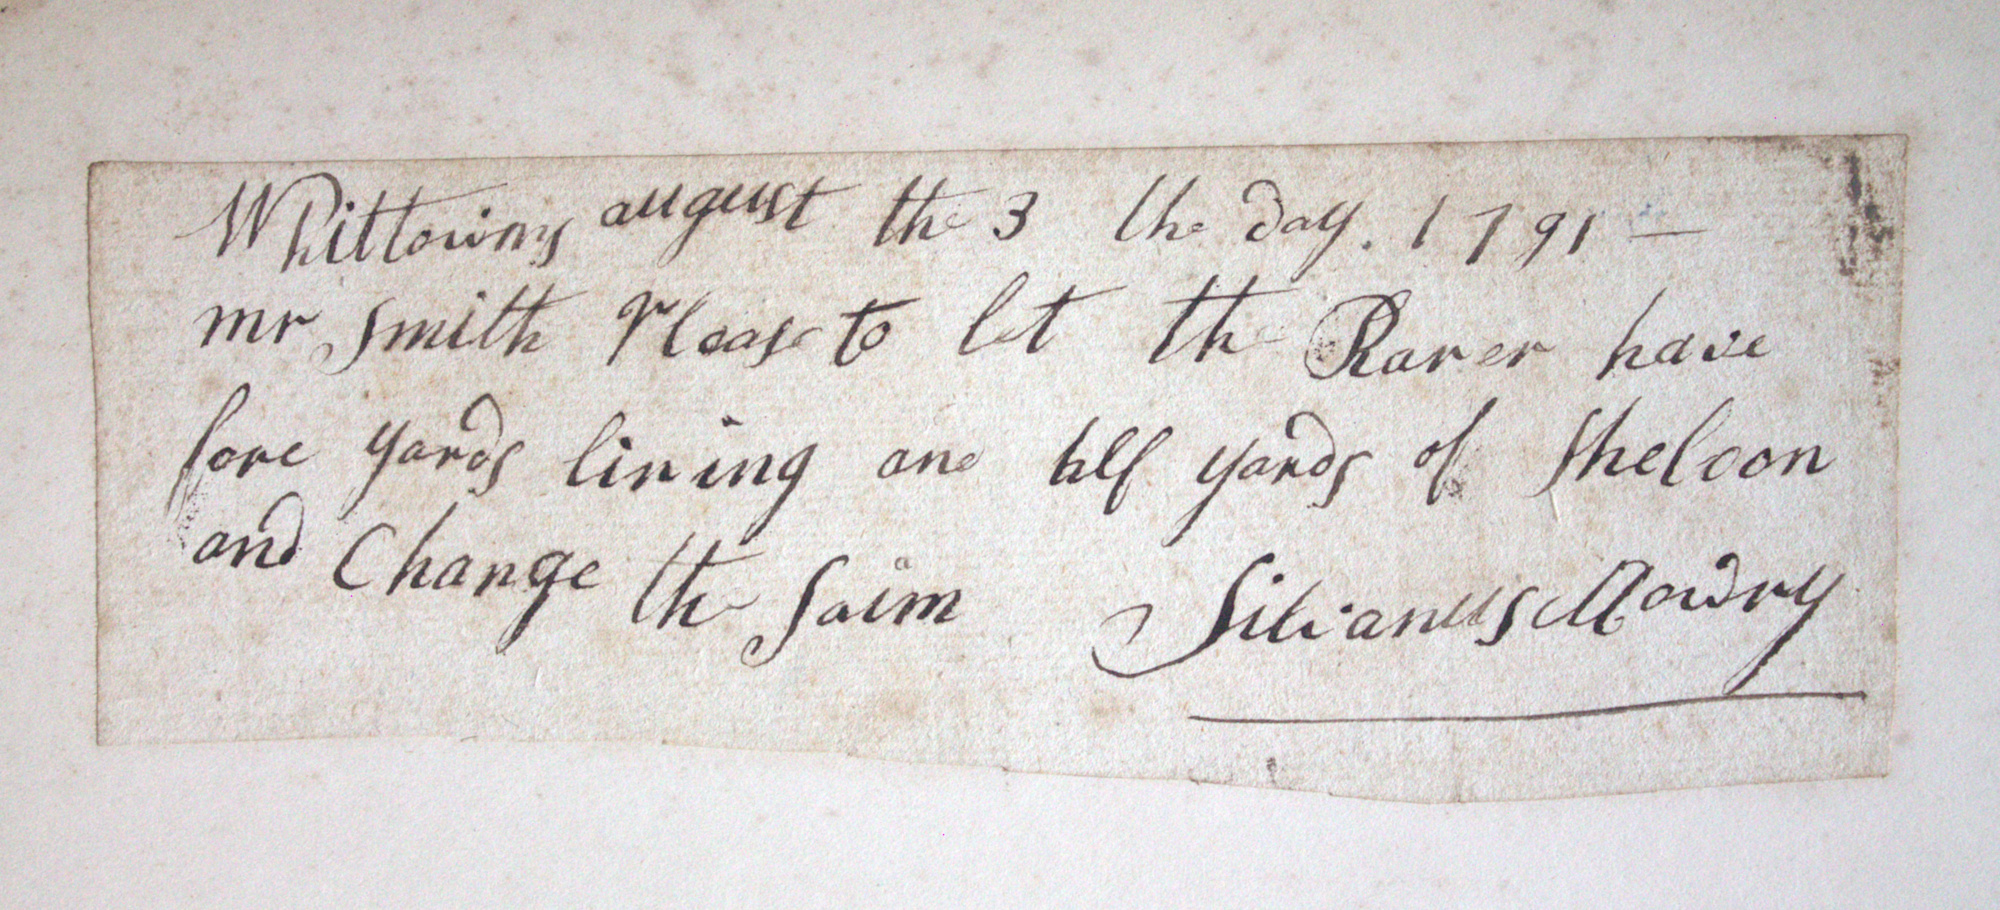 Whittowny august the 3 the day. 1791 —
mr Smith Please to let the Rarer have
fore yards lining one hlf yards of Sheloon
and Change the Saim Silvanus Mowry